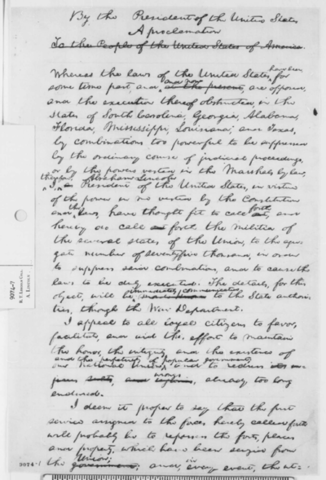 By the President of the United States
A proclamation
To the People of the United States of America
Whereas the laws of the United States, have been
for some time past, and now at the present, are opposed,
and the execution thereof obstructed, in the
states of South Carolina, Georgia, Alabama,
Florida, Mississippi, Louisiana, and Texas,
by combinations too powerful to be suppressed
by the ordinary course of judicial proceedings,
or by the powers vested in the Marshals, by law,
therefore I, Abraham Lincoln
President of the United States, in virtue
of the power in me vested by the Constitution
and the laws, have thought fit to call forth, and
hereby do call forth, the militia of
the several states of the Union, to the aggre-
gate number of seventyfive thousand, in order
to suppress said combinations, and to cause the
laws to be duly executed. The details, for this
object, will be immediately communicated to the State authori-
ties, through the War Department.
I appeal to all loyal citizens to favor,
facilitate, and aid this effort to maintain
the honor, the integrity, and the existence of
our National Union, and the perpetuity of popular government;
and to redress
wrongs already too long
endured.
I deem it proper to say that the first
service assigned to the forces hereby called forth
will probably be to repossess the forts, places
and property, which have been seized from
the Union; government, and in every event, the ut-
9074-7
9074-1